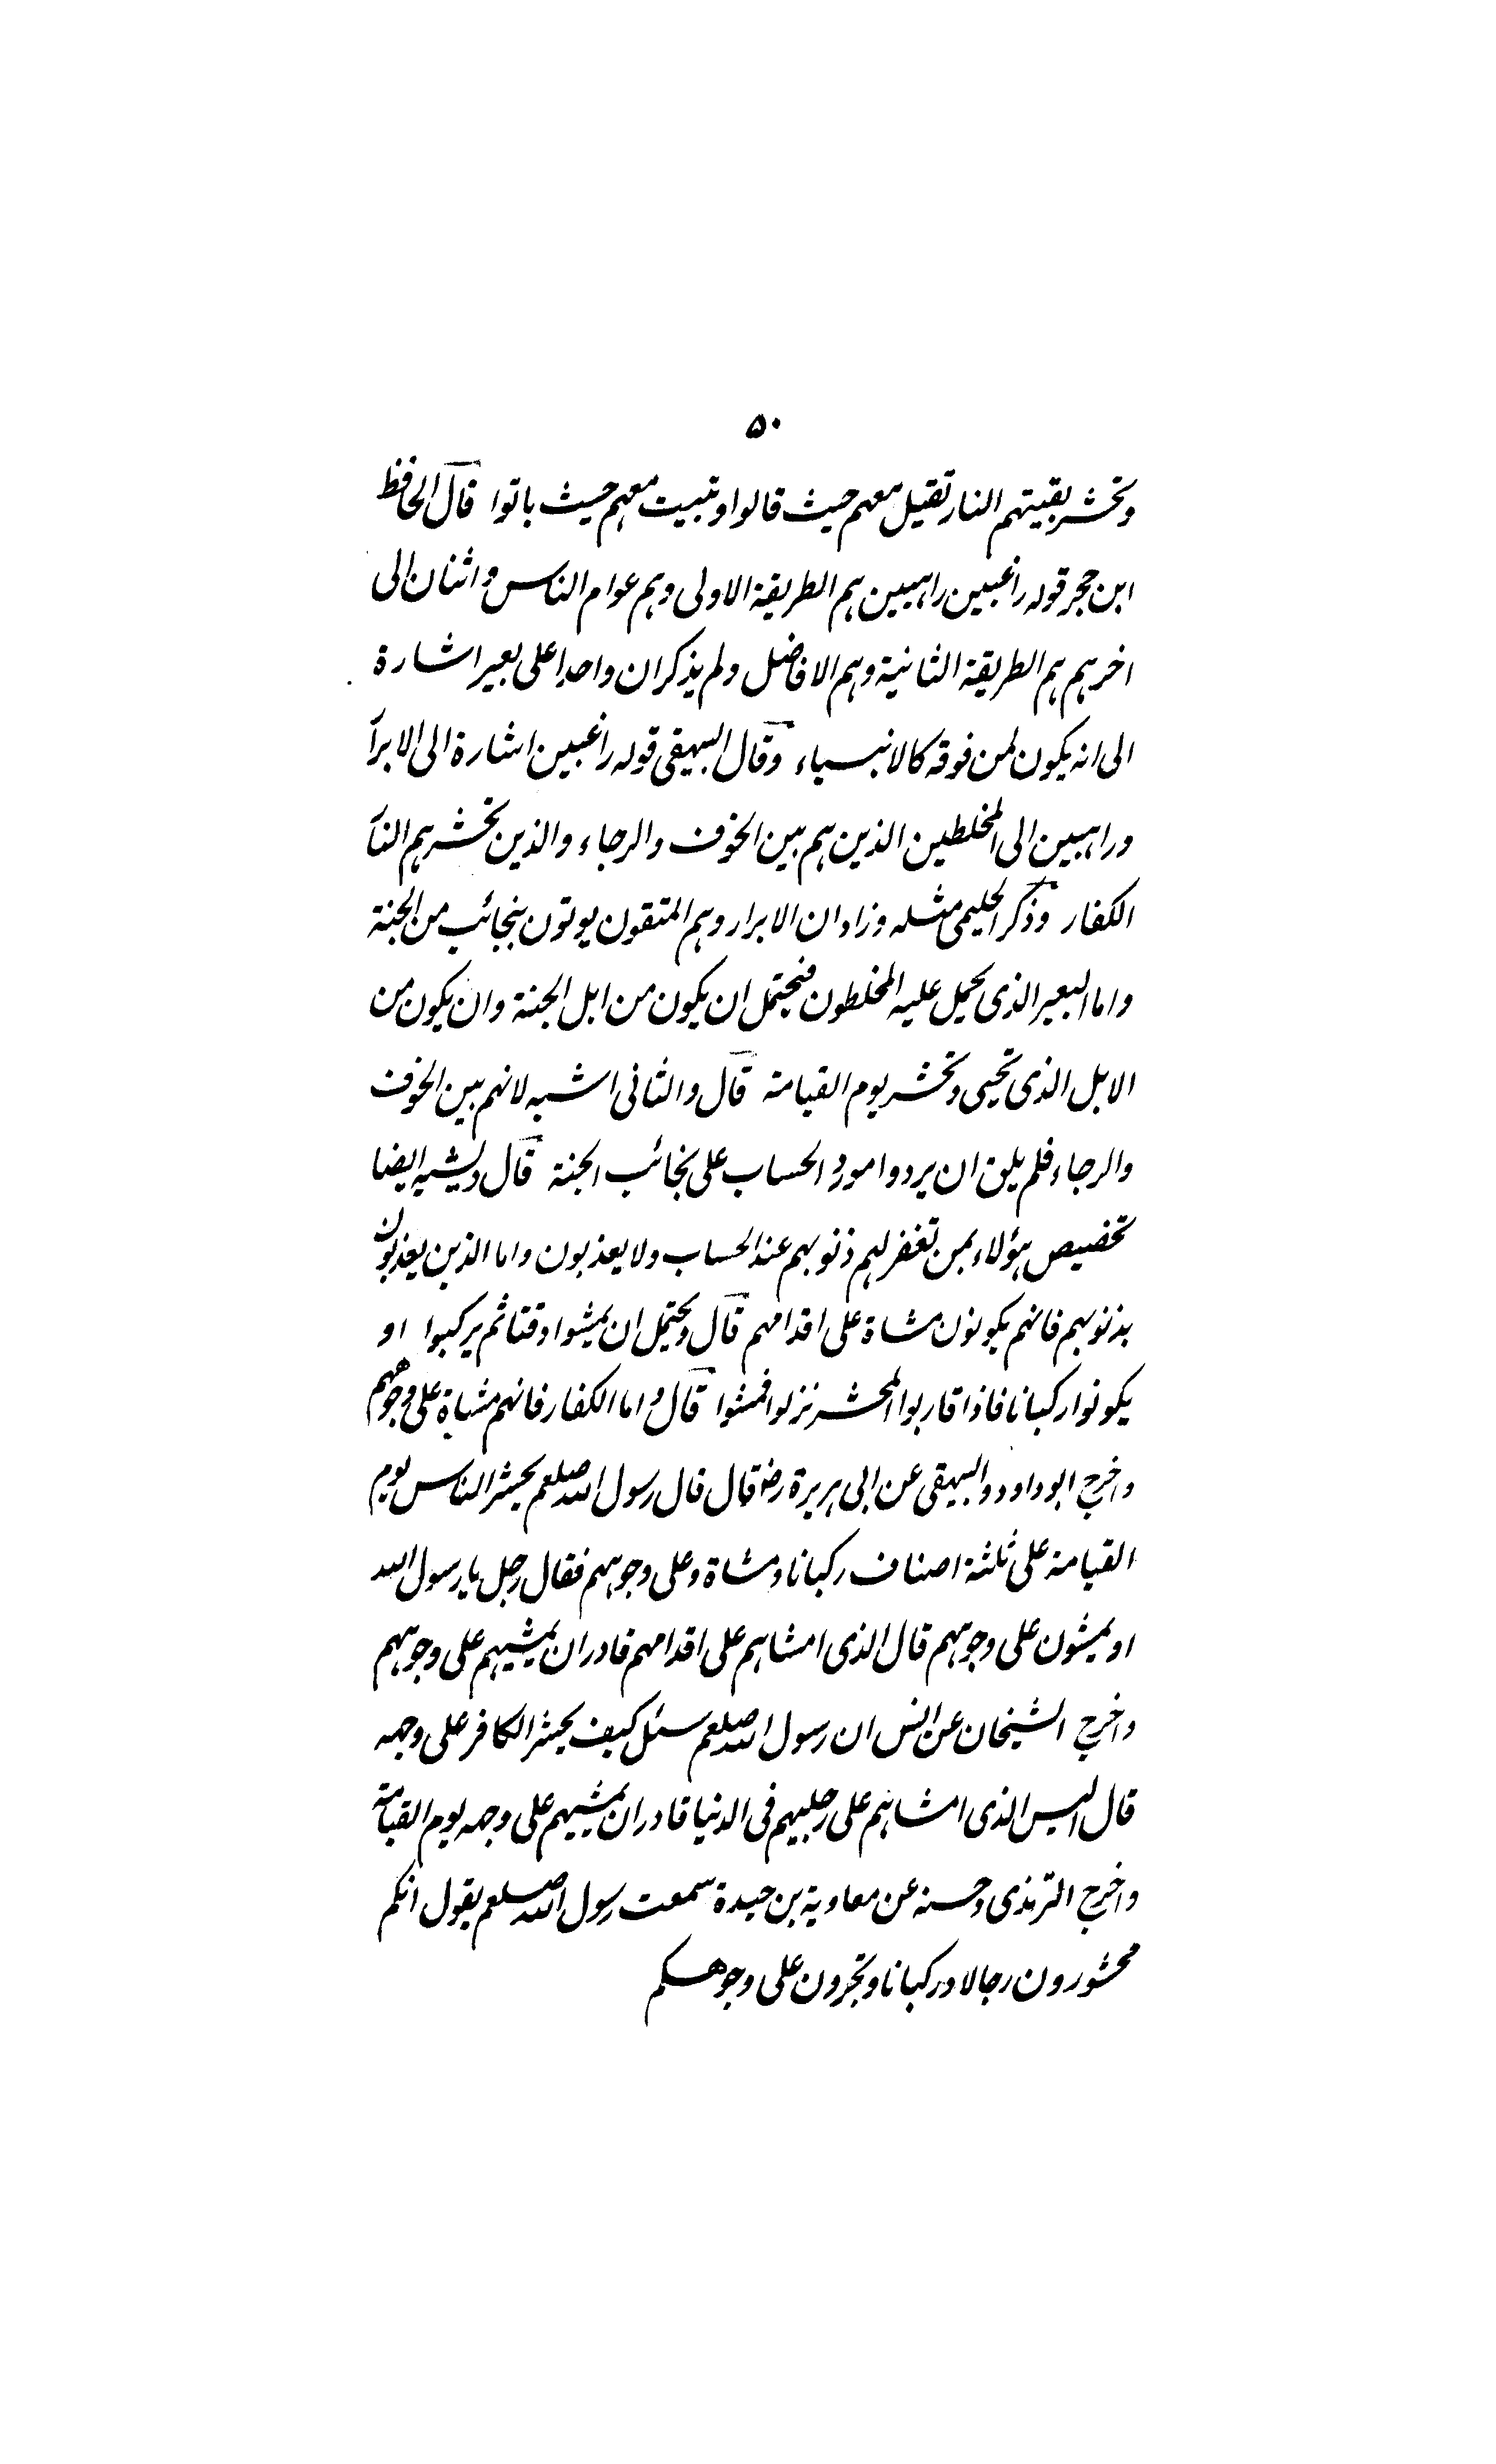 ۵۰
وتحشر بقيتهم النار تقيل معهم حيث قالوا وتبيت معهم حيث باتوا قال الحافظ
ابن حجر قوله راغبين راهبين هم الطريقة الاولى وهم عوام الناس واثنان الى
اخرهم هم الطريقة الثانية وهم الافاضل ولم يذكر ان واحدا على بعير اشارة
الى انه يكون لمن فوقه كالانبياء وقال البيهقى قوله راغبين اشارة الى الابرآ
وراهبين الى المخلطين الذين هم بين الخوف والرجاء والذين تحشرهم النآ
الكفار وذكر الحليمى مثله وزاد ان الابرار وهم المتقون يوتون بنجائب من الجنة
واما البعير الذى يحمل عليه المخلطون فيحتمل ان يكون من ابل الجنة وان يكون من
الابل الذى تحيى وتحشر يوم القيامة قال والثانى اشبه لانهم بين الخوف
والرجاء فلم يلق ان يردوا مورد الحساب على نجائب الجنة قال ويشبه ايضا
تخصيص هؤلاء بمن تغفر لهم ذنوبهم عند الحساب ولا يعذبون واما الذين يعذبون
بذنوبهم فانهم يكونون مشاة على اقدامهم قال ويحتمل ان يمشوا وقتا ثم يركبوا او
يكونوا ركبانا فاذا قاربوا المحشر نزلوا فمشوا قال واما الكفار فانهم مشاة على وجوههم
واخرج ابوداود والبيهقى عن ابى هريرة رض قال قال رسول الله صلعم يحشر الناس يوم
القيامة على ثلثة اصناف ركبانا ومشاة وعلى وجوههم فقال رجل يا رسول الله
او يمشون على وجوههم قال الذى امشاهم على اقدامهم قادر ان يمشيهم على وجوههم
واخرج الشيخان عن انس ان رسول الله صلعم سئل كيف يحشر الكافر على وجهه
قال اليس الذى امشاهم على رجليهم فى الدنيا قادر ان يمشيهم على وجهه يوم القيامة
واخرج الترمذى وحسنه عن معاوية بن حيدة سمعت رسول الله صلعم يقول انكم
محشورون رجالا وركبانا وتجرون على وجوهكم